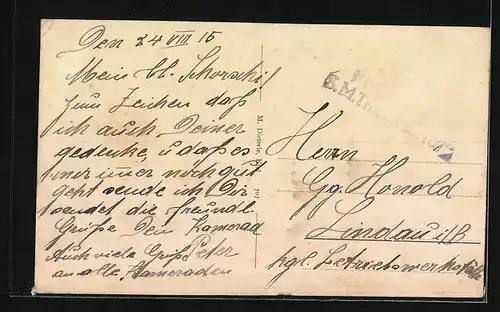 Den 24 VIII 15
Mein lb. Schorschi!
zum Zeichen daß
ich auch Deiner
gedenke, u daß es
mir immer noch gut
geht sende ich Dir
sendet die freundl.
Grüße Dein Kamerad
Peter
Auch viele Grüße
an alle Kameraden
M. Dieterle,
S.M.
Herrn
Gg. Honold
Lindau i/B
kgl. Betriebswerkstätte